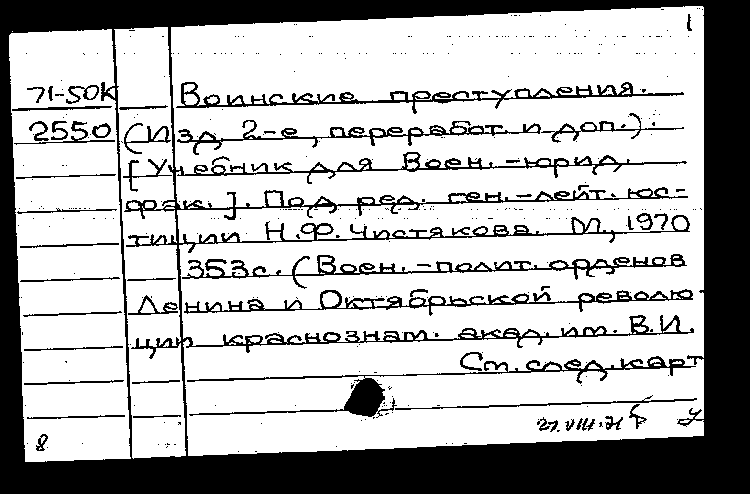 1
71-50К Воинские преступления.
2550 (Изд. 2-е, переработ и доп.).
[Учебник для Воен.-юрид.
фак.]. Под ред. ген.-лейт. юс-
тиции Н.Ф. Чистякова. М., 1970
353с. (Воен.-полит. орденов
Ленина и Октябрьской револю-
ции краснознам. акад. им. В.И.
См. след. карт
27.VIII.71
8